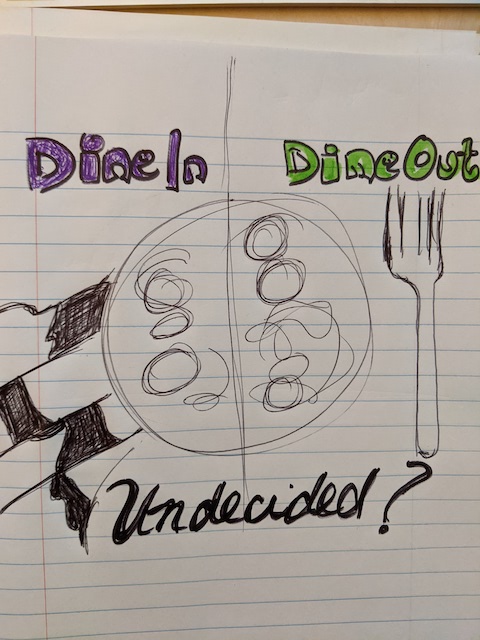 Dine In
Dine Out
Undecided?